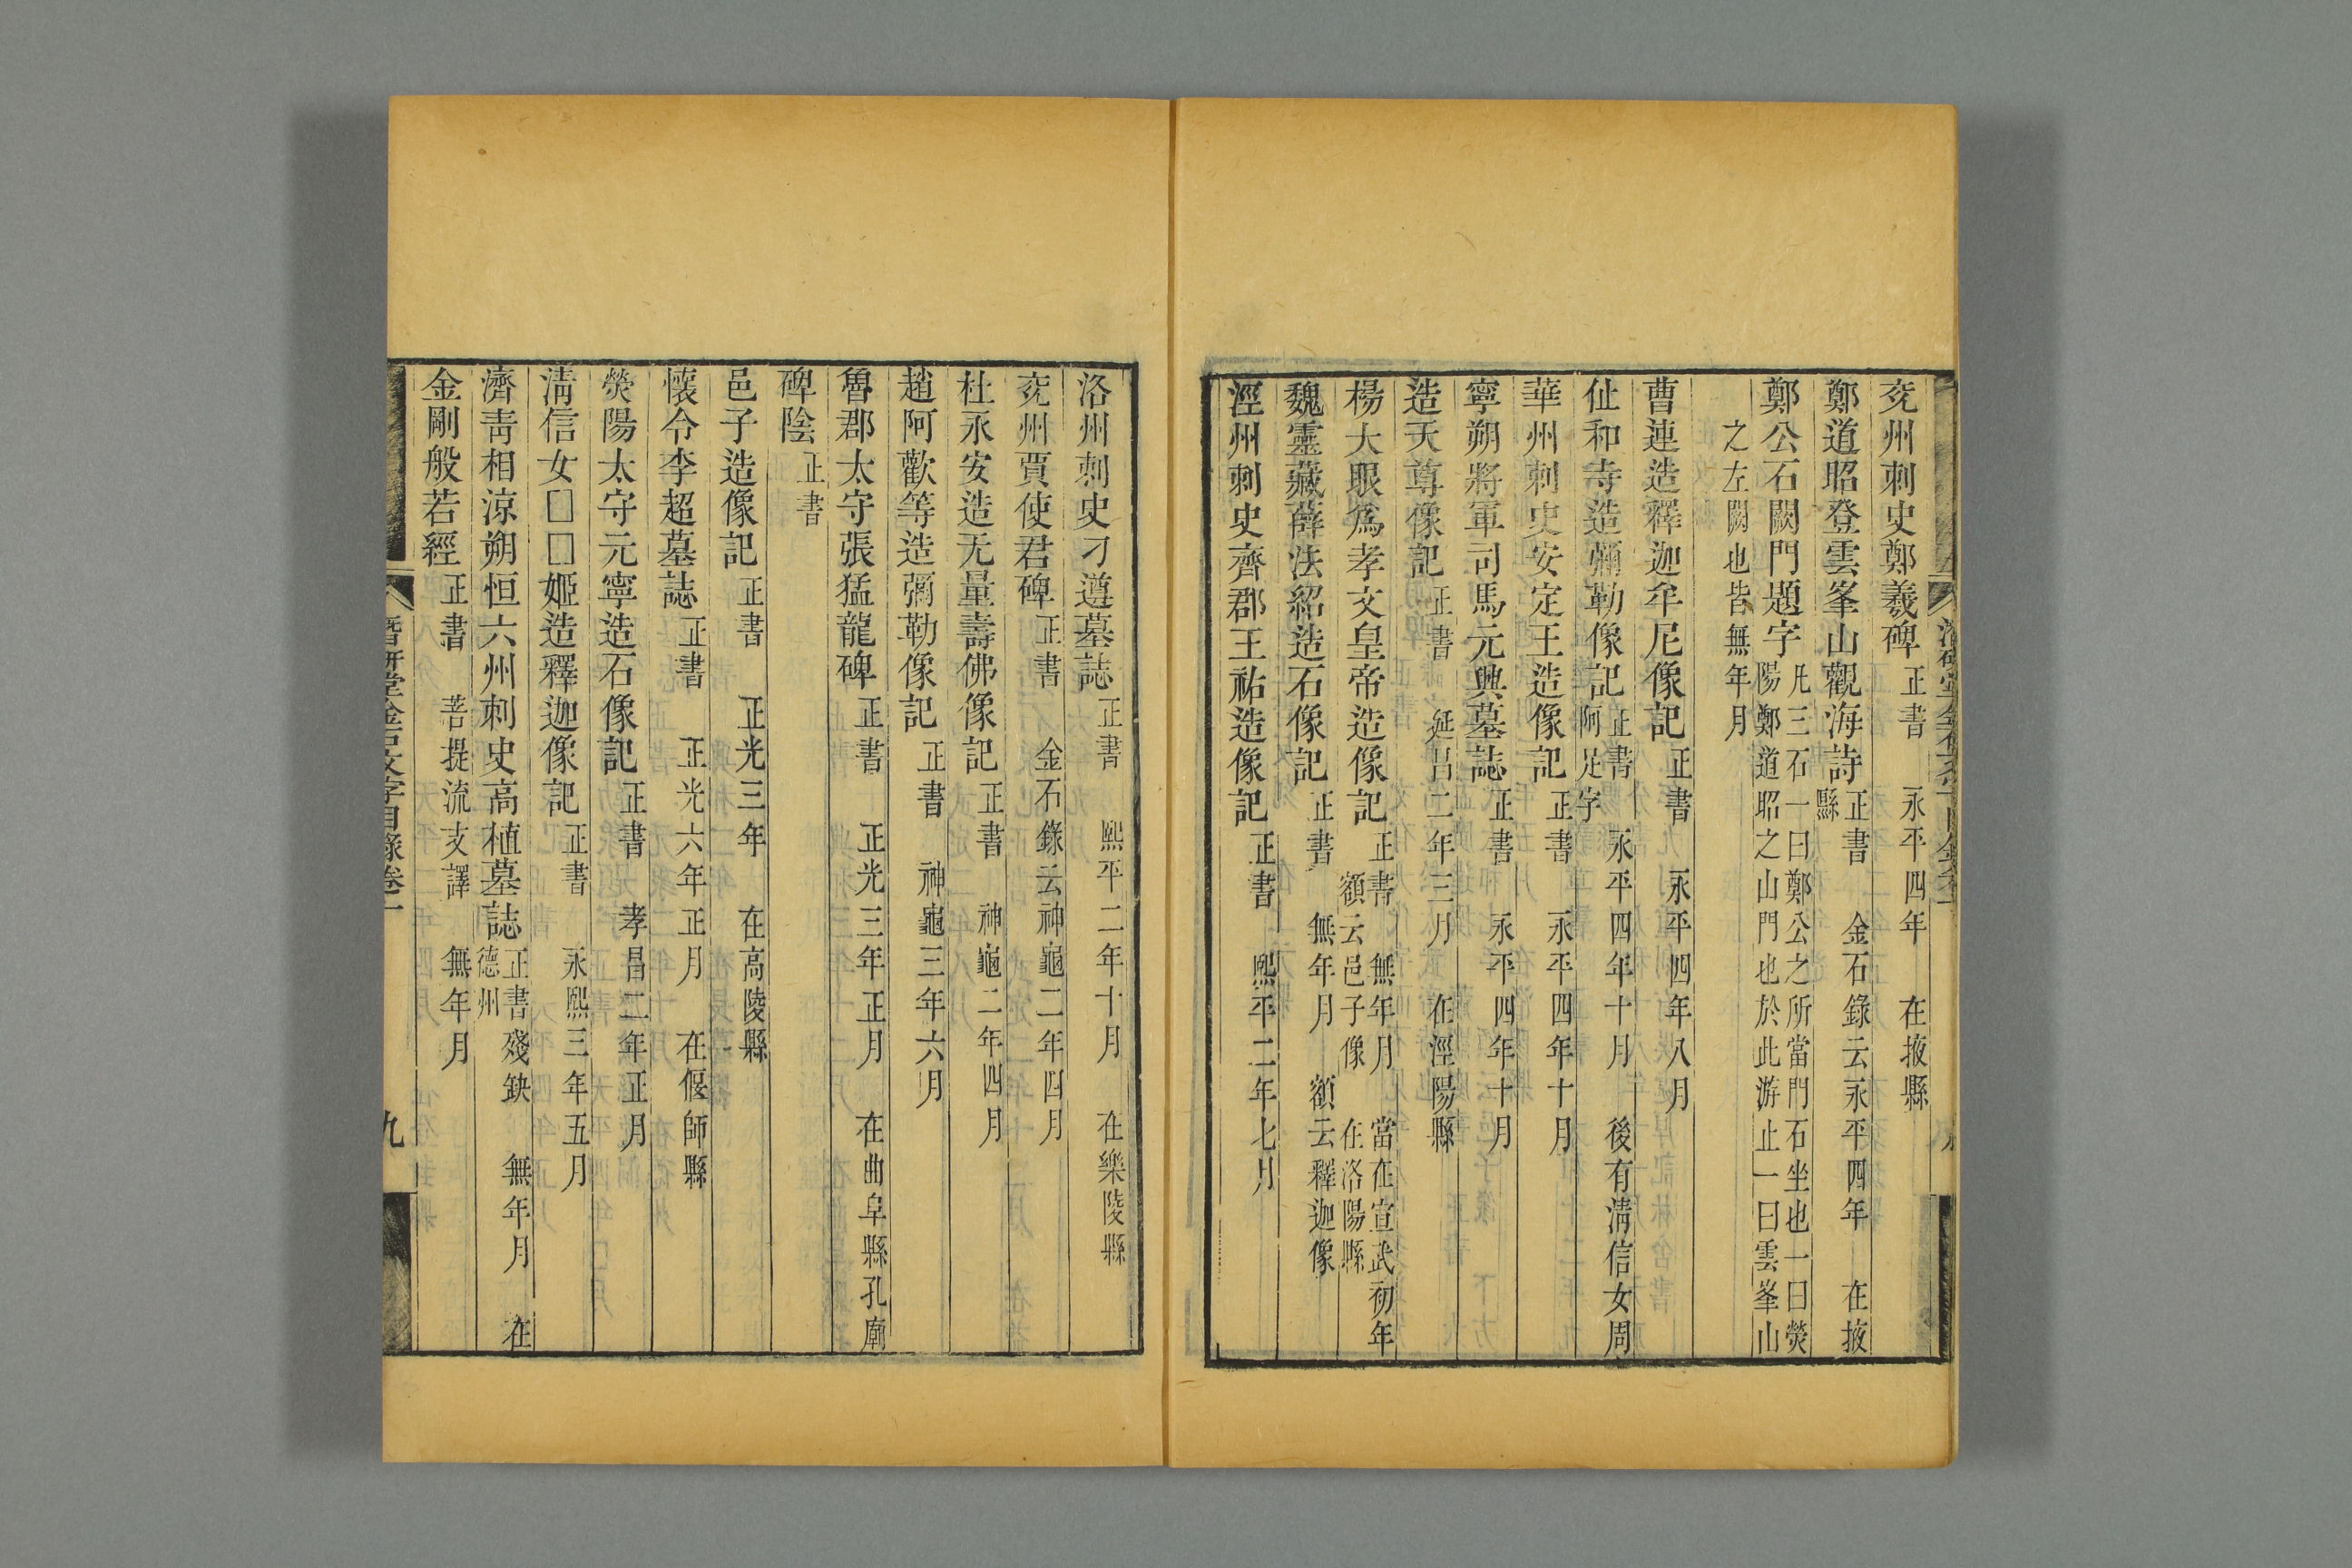 兖州刺史鄭羲碑 正書 永平四年 在掖縣
鄭道昭登雲峯山觀海詩 正書 金石錄云永平四年 在掖縣
鄭公石闕門題字 凡三石一曰鄭公之所當門石坐也一曰熒陽鄭道昭之山門也於此游止一曰雲峯山
之左闕也皆無年月
曹連造釋迦牟尼像記 正書 永平四年八月
仳和寺造彌勒像記 正書 永平四年十月 後有淸信女周阿足字
華州刺史安定王造像記 正書 永平四年十月
寧朔將軍司馬元興墓誌 正書 永平四年十月
造天尊像記 正書 延昌二年三月 在涇陽縣
楊大眼爲孝文皇帝造像記 正書 無年月 當在宣武初年 額云邑子像 在洛陽縣
魏靈藏薛法紹造石像記 正書 無年月 額云釋迦像
涇州刺史齊郡王祐造像記 正書 熙平二年七月
洛州刺史刁遵墓誌 正書 熙平二年十月 在樂陵縣
兖州賈使君碑 正書 金石錄云神龜二年四月
杜永安造无量壽佛像記 正書 神龜二年四月
趙阿歡等造彌勒像記 正書 神龜三年六月
魯郡太守張猛龍碑 正書 正光三年正月 在曲阜縣孔廟
碑陰 正書
邑子造像記 正書 正光三年 在高陵縣
懷令李超墓誌 正書 正光六年正月 在偃師縣
熒陽太守元寧造石像記 正書 孝昌二年正月
淸信女□□姬造釋迦像記 正書 永熙三年五月
濟靑相涼朔恒六州刺史高植墓誌 正書殘缺 無年月 在德州
金剛般若經 正書 菩提流支譯 無年月
潛研堂金石文字目錄卷一
九